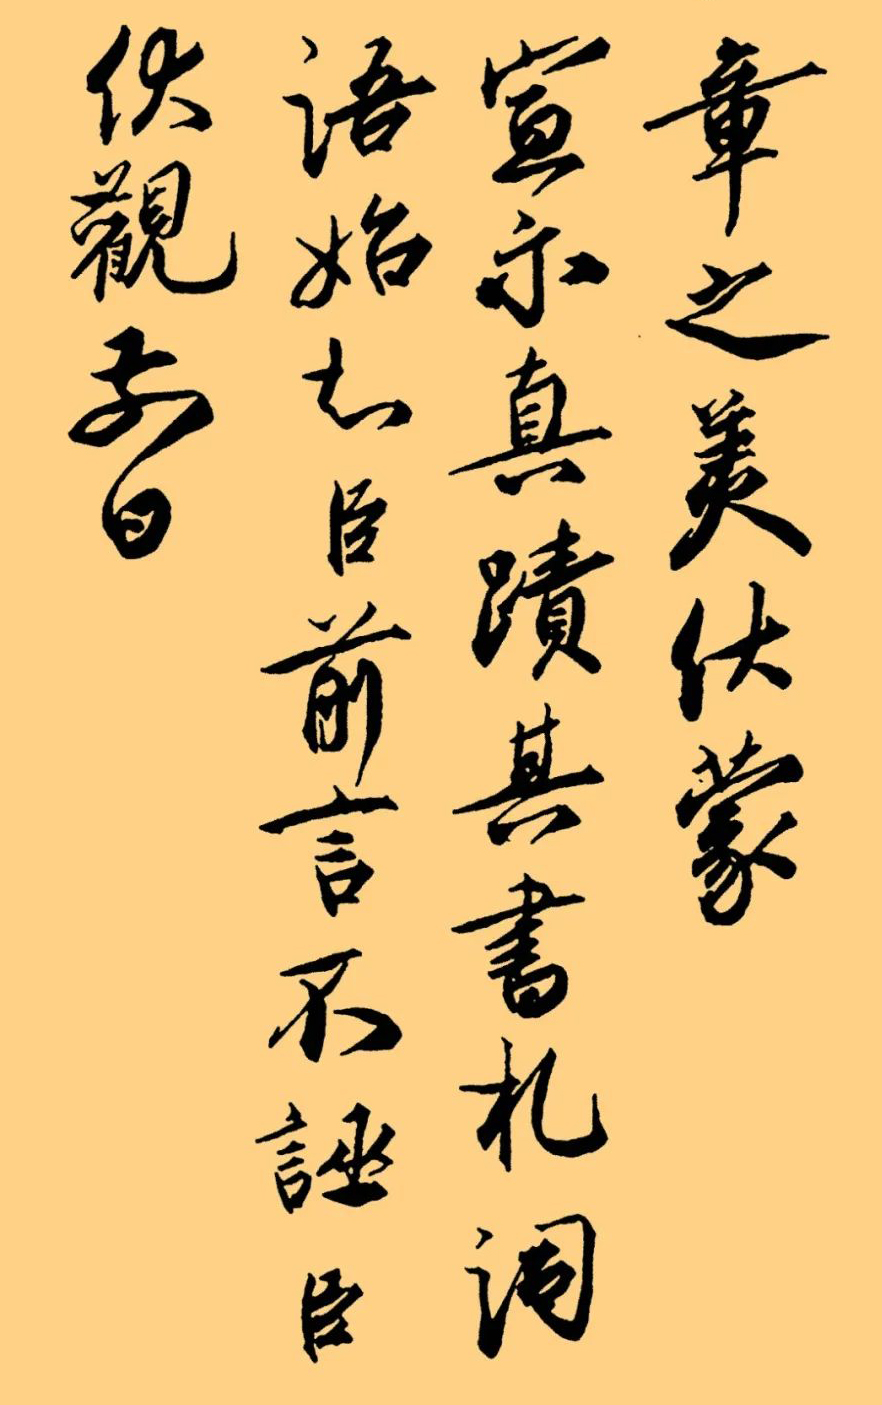 章之美伏蒙
宣示真蹟其書札調
語始知臣前言不誣臣
伏觀前日